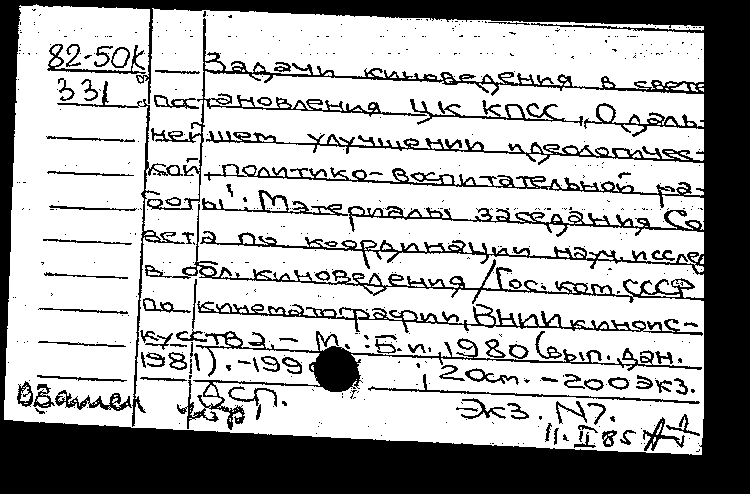 82-50К Задачи киноведения в свете
331 постановления ЦК КПСС „О даль-
нейшем улучшении идеологичес-
кой, политико-воспитательной ра-
боты": Материалы заседания Со
вета по координации науч. исслед
в обл. киноведения / Гос. ком. СССР
по кинематографии, ВНИИ киноис-
кусства. - М. : Б.и., 1980 (вып. дан.
1981). - 199 ; 20 см. - 200 экз.
Взамен ДСП.
Экз. N7.
11.II 85